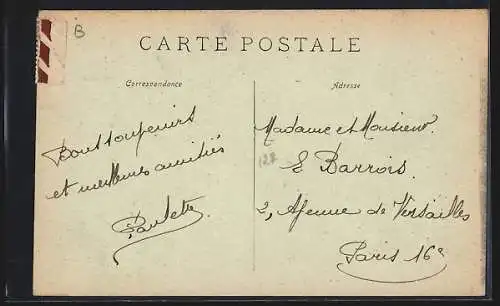 B
CARTE POSTALE
Correspondance
Adresse
Bons souvenirs
et meilleures amitiés
Paulette
Madame et Monsieur
128
E Barrois.
2, Avenue de Versailles
Paris 16e